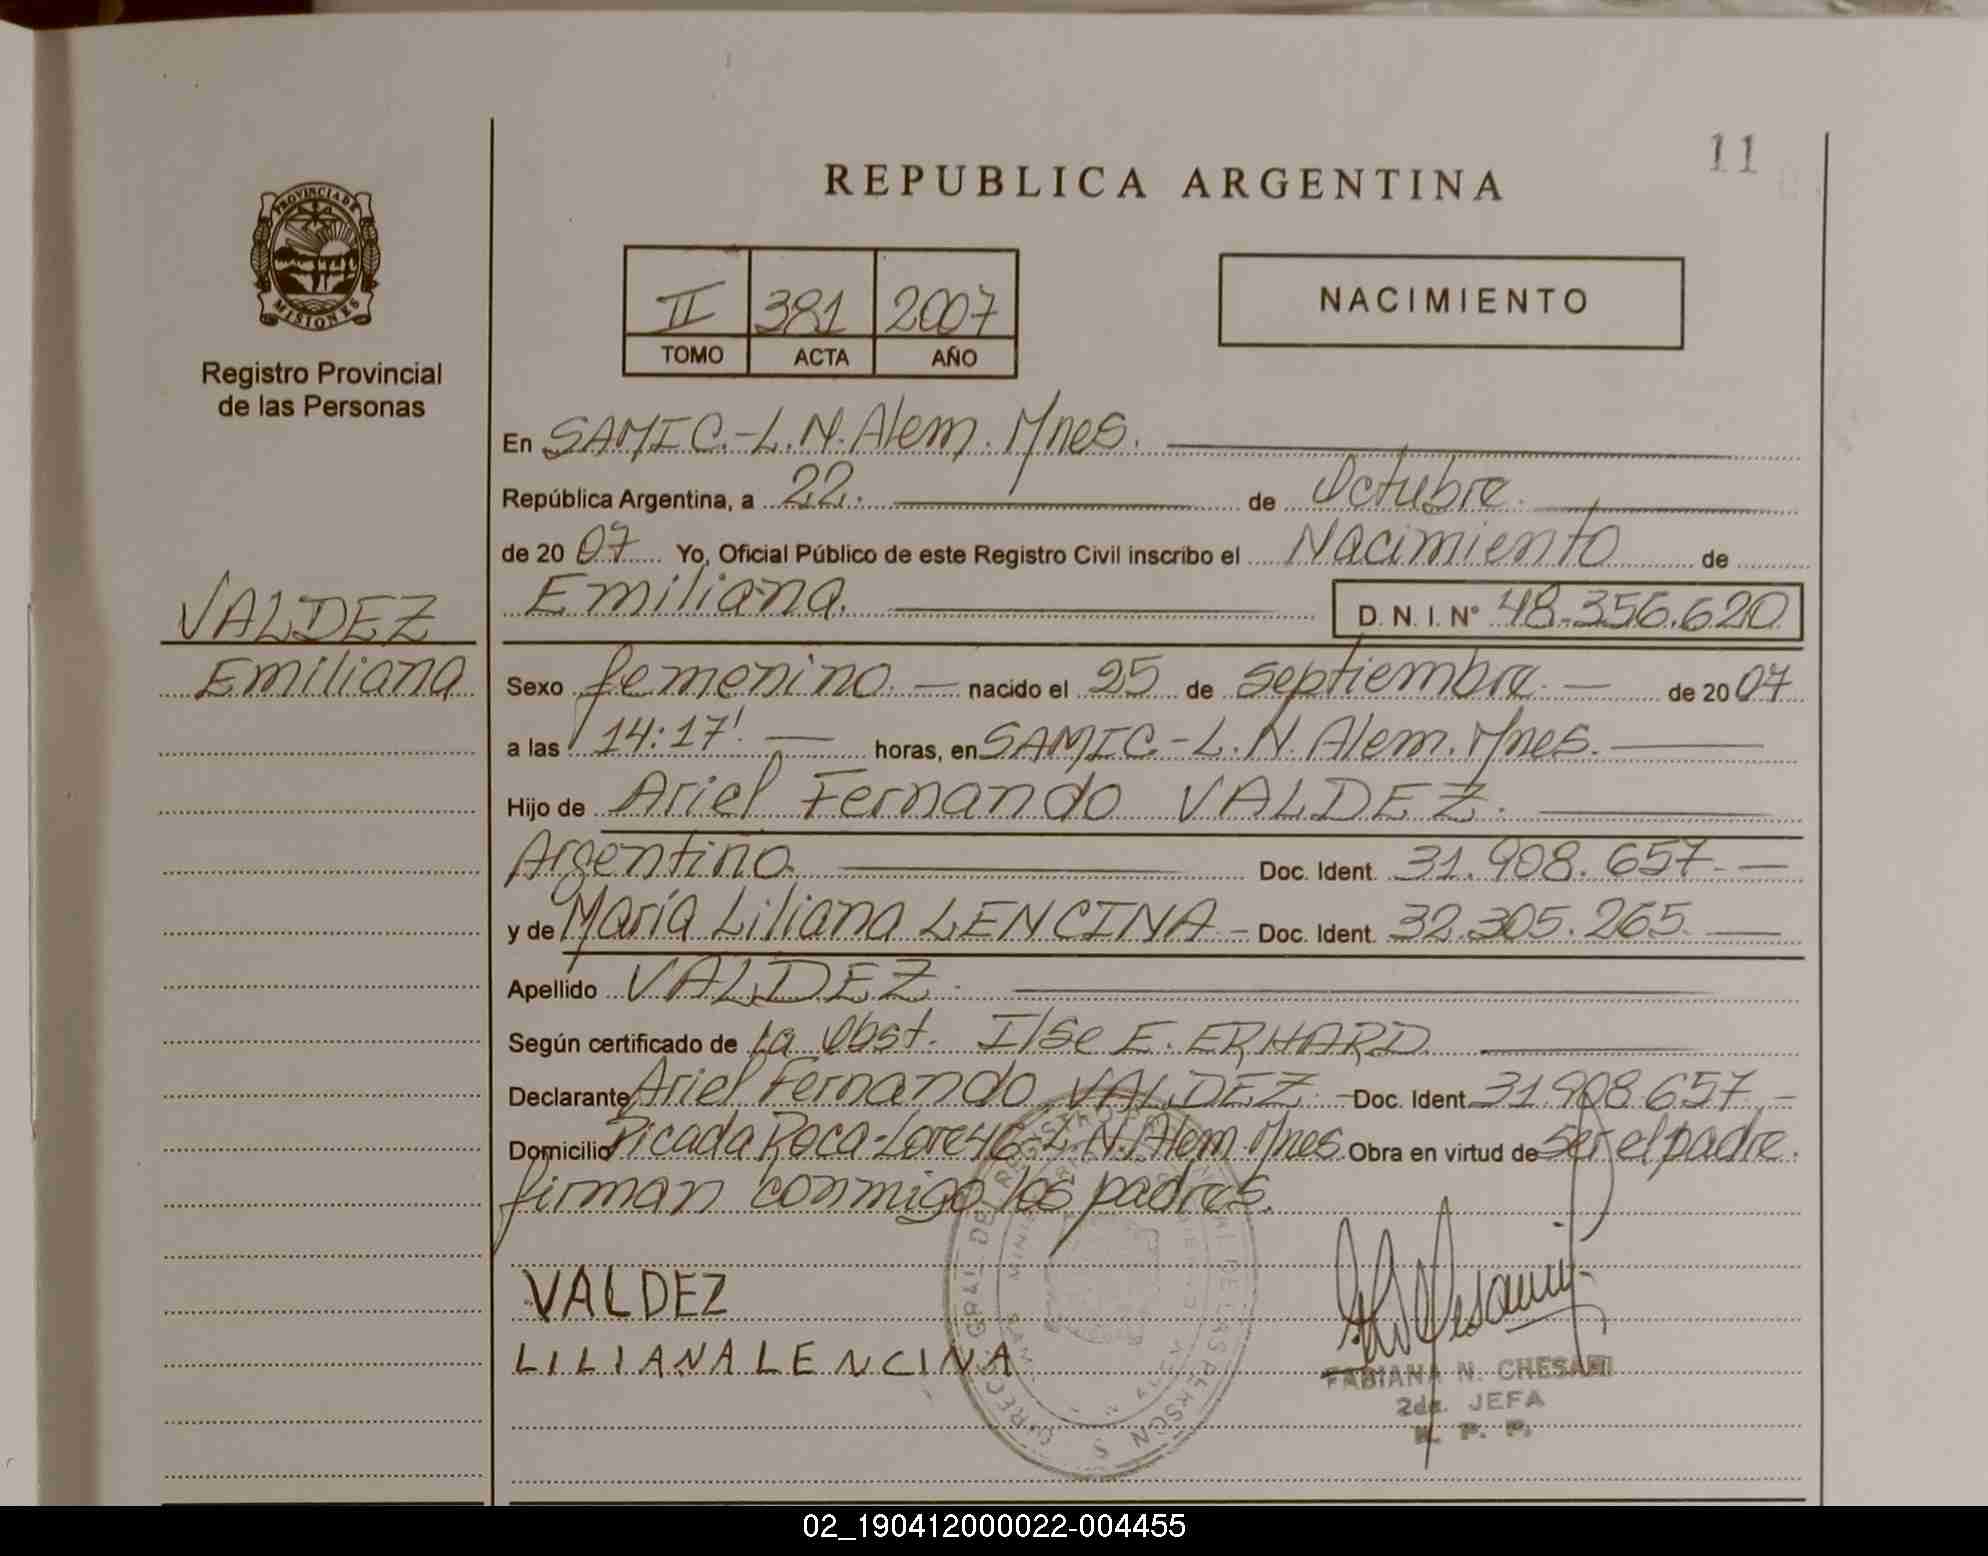 11
REPUBLICA ARGENTINA
PROVINCIA DE
MISIONES
Registro Provincial
de las Personas
II 381 2007
TOMO ACTA AÑO
NACIMIENTO
En SAMIC.-L.N.Alem.Mnes.
República Argentina, a 22. de Octubre.
de 20 07 Yo, Oficial Público de este Registro Civil inscribo el Nacimiento de
Emiliana. D. N. I. Nº 48.356.620
VALDEZ
Emiliana
Sexo femenino.- nacido el 25 de septiembre.- de 20 07
a las 14:17'.- horas, en SAMIC-L.N.Alem.Mnes.
Hijo de Ariel Fernando VALDEZ.
Argentino. Doc. Ident. 31.908.657.-
y de María Liliana LENCINA - Doc. Ident. 32.305.265.
Apellido VALDEZ.
Según certificado de la Obst. Ilse E. ERHARD.
Declarante Ariel Fernando VALDEZ.- Doc. Ident. 31.908.657 -
Domicilio Picada Roca-Lote 46-L.N.Alem.Mnes. Obra en virtud de ser el padre.
firman conmigo los padres.
VALDEZ
LILIANA LENCINA
FABIANA N. CHESANI
2da. JEFA
R. P. P.
02_190412000022-004455